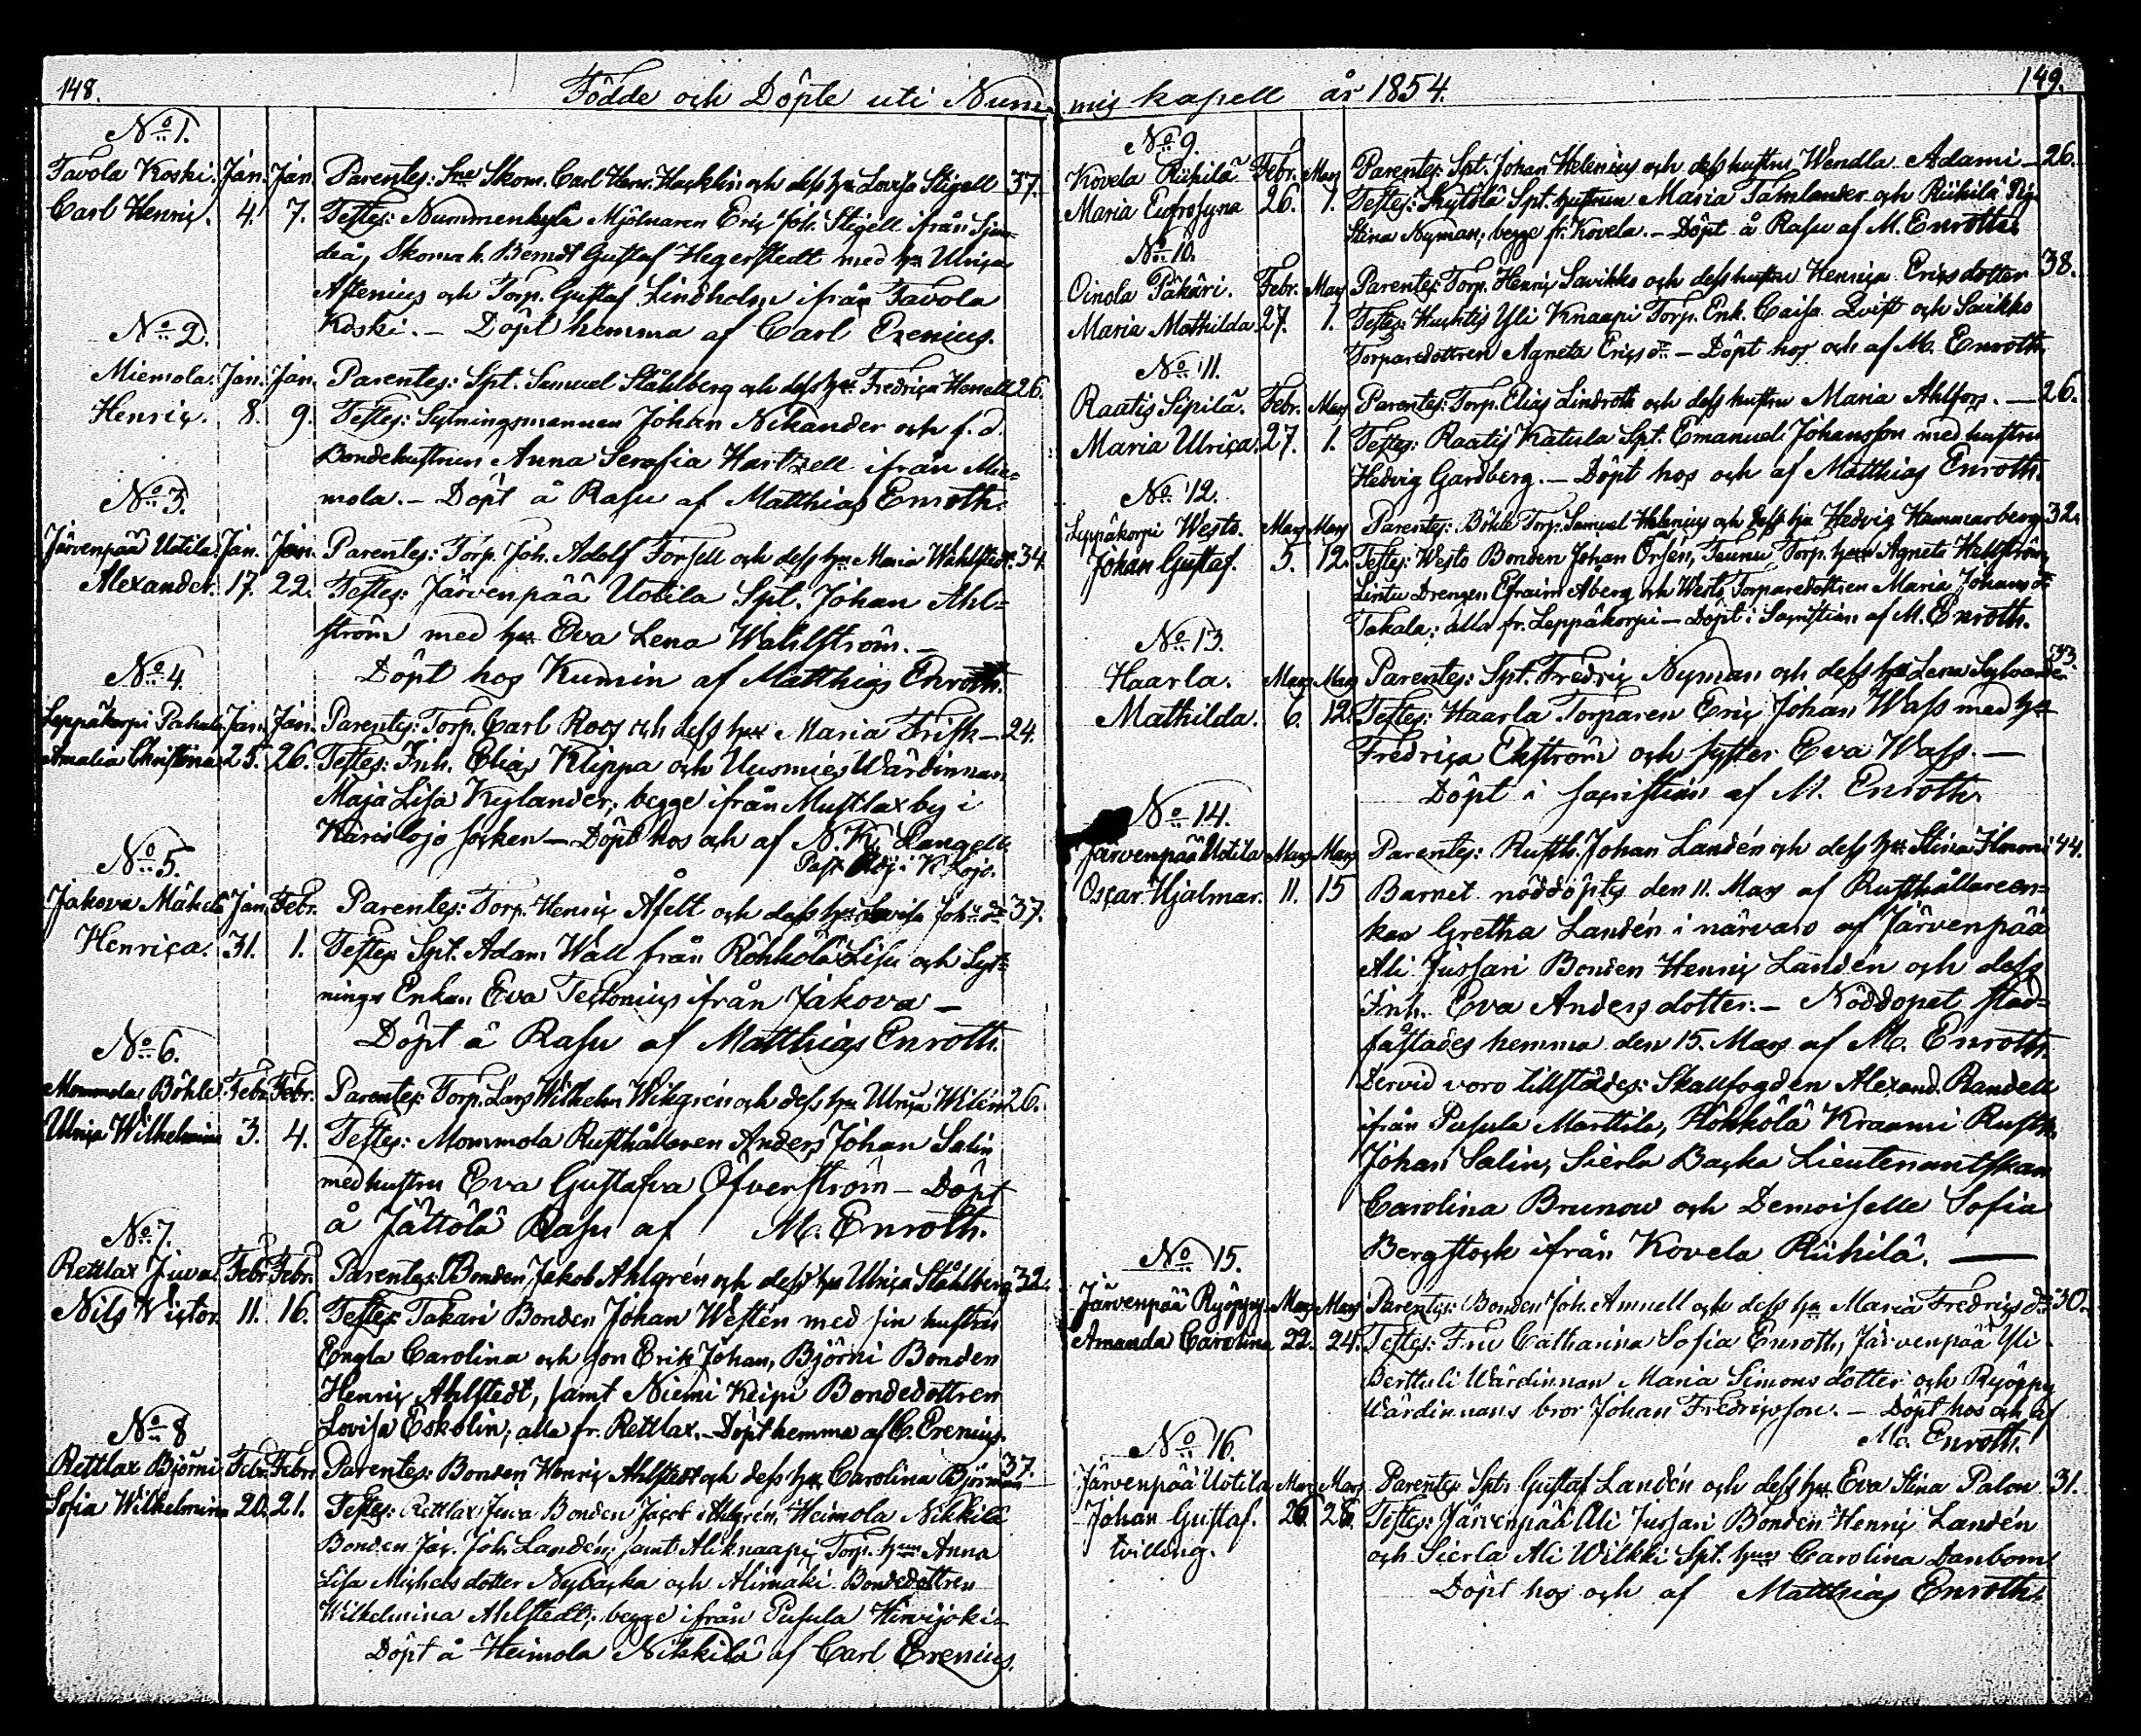 148.
Födde och Döpte uti Num-
mis kapell år 1854.
149.
No 1.
Tavola Koski. Jan. Jan. Parentes: Sne Skom. Carl Henr. Hacklin och dess hu Lovisa Stigell 37.
Carl Henric. 4. 7. Testes: Nummenkylä Mjölnaren Eric Joh. Stigell ifrån Sjun-
deå, Skomak. Berndt Gustaf Hegerstedt med hu Ulrica
Astenius och Torp. Gustaf Lindholm ifrån Tavola
Koski. — Döpt hemma af Carl Erenius.
No 2.
Miemola. Jan. Jan. Parentes: Spt. Samuel Ståhlberg och dess hu Fredrica Hersell 26.
Henric. 8. 9. Testes: Sytningsmannen Johan Nikander och f. d.
Bondehustrun Anna Serafia Hartzell ifrån Mie-
mola. — Döpt å Rasu af Matthias Enroth.
No 3.
Järvenpää Uotila. Jan. Jan. Parentes: Torp. Joh. Adolf Forsell och dess hu Maria Wahlstedt. 34.
Alexander. 17. 22. Testes: Järvenpää Uotila Spt. Johan Ahl-
ström med hu Eva Lena Wahlström. —
Döpt hos Kumin af Matthias Enroth.
No 4.
Leppäkorpi Pahala Jan. Jan. Parentes: Torp. Carl Roos och dess hu Maria Frisk — 24.
Amalia Christina 25. 26. Testes: Inh. Elias Klippa och Uusmies Wärdinnan
Maja Lisa Kylander, begge ifrån Mustlax by i
Karislojo socken — Döpt hos och af N. K. Langell
Past. Adj. i K. Lojo.
No 5.
Jakova Mäkelä Jan. Febr. Parentes: Torp. Henric Afelt och dess hu Lovisa Joh. dr 37.
Henrica. 31. 1. Testes Spt. Adam Wall från Röhkölä Lisu och Syt-
nings Enkan Eva Tectonius ifrån Jakova —
Döpt å Rasu af Matthias Enroth.
No 6.
Mommola Böhle. Febr. Febr. Parentes: Torp. Lars Wilhelm Wikgrén och dess hu Ulrica Wilén 26.
Ulrica Wilhelmina 3. 4. Testes: Mommola Rusthållaren Anders Johan Salin
med hustru Eva Gustafva Öfverström — Döpt
å Jättölä Rasu af M. Enroth.
No 7.
Rettlax Juva. Febr. Febr. Parentes: Bonden Jakob Ahlgrén och dess hu Ulrica Ståhlberg 32.
Nils Victor. 11. 16. Testes: Takari Bonden Johan Westén med sin hustru
Engla Carolina och son Erik Johan, Björni Bonden
Henric Ahlstedt, samt Niemi Keipi Bondedottren
Lovisa Eskolin, alla fr. Rettlax. — Döpt hemma af C. Erenius.
No 8
Rettlax Björni Febr. Febr. Parentes: Bonden Henric Ahlstedt och dess hu Carolina Björnman 37.
Sofia Wilhelmina 20. 21. Testes: Rettlax Juva Bonden Jacob Ahlgrén, Heimola Nikkilä
Bonden Jac. Joh. Landén, samt Aliknaapi Torp. hun Anna
Lisa Michelsdotter Nybacka och Alimäki Bondedottren
Wilhelmina Ahlstedt, begge ifrån Pusula Hirvijoki —
Döpt å Heimola Nikkilä af Carl Erenius.
No 9.
Kovela Riihilä Febr. Mars Parentes: Spt. Johan Helenius och dess hustru Wendla Adami — 26.
Maria Eufrosyna 26. 1. Testes: Skytölä Spt. hustrun Maria Tamlander och Riihilä Pig.
Stina Nyman, begge fr. Kovela. — Döpt å Rasu af M. Enroth.
No 10.
Oinola Päkäri. Febr. Mars Parentes: Torp. Henric Savikko och dess hustru Henrica Ericsdotter 38.
Maria Mathilda 27. 1. Testes: Huhtis Yli Knaapi Torp. Enk. Caisa Qvist och Savikko
Torparedottren Agneta Erics dr — Döpt hos och af M. Enroth.
No 11.
Raatis Sipilä. Febr. Mars Parentes: Torp. Elias Lindroth och dess hustru Maria Ahlfors. — 26.
Maria Ulrica. 27. 1. Testes: Raatis Katula Spt. Emanuel Johansson med hustru
Hedvig Gardberg. — Döpt hos och af Matthias Enroth.
No 12.
Leppäkorpi Westo. Mars Mars Parentes: Böhle Torp. Samuel Helenius och dess hu Hedvig Hammarberg 32.
Johan Gustaf. 5. 12. Testes: Westo Bonden Johan Orsén, Teunu Torp. hun Agneta Hellström,
Lintu Drengen Efraim Åberg och Westo Torparedottren Maria Johans dr
Takala; alla fr. Leppäkorpi — Döpt i Sacristian af M. Enroth.
No 13.
Haarla. Mars Mars Parentes: Spt. Fredric Nyman och dess hu Lena Sylvander 33.
Mathilda. 6. 12. Testes: Haarla Torparen Eric Johan Wass med hu
Fredrica Ekström och syster Eva Wass. —
Döpt i sacristian af M. Enroth.
No 14.
Järvenpää Uotila Mars Mars Parentes: Rusth. Johan Landén och dess hu Stina Himmi 44.
Oscar Hjalmar. 11. 15 Barnet nöddöptes den 11. Mars af Rusthållareen-
kan Gretha Landén i närvaro af Järvenpää
Ali Jussari Bonden Henric Landén och dess
Inh. Eva Andersdotter. — Nöddopet stad-
fästades hemma den 15. Mars af M. Enroth.
Dervid voro tillstädes: Skallfogden Alexand. Randell
ifrån Pusula Marttila, Röhkölä Kraami Rusth.
Johan Salin, Sierla Backa Lieutenantskan
Carolina Brunow och Demoiselle Sofia
Bergstock ifrån Kovela Riihilä. —
No 15.
Järvenpää Ryöppy. Mars Mars Parentes: Bonden Joh. Amnell och dess hu Maria Fredrics dr 30.
Amanda Carolina 22. 24. Testes: Fru Catharina Sofia Enroth, Järvenpää Yli
Berttuli Wärdinnan Maria Simonsdotter och Ryöppy
Wärdinnans bror Johan Fredricsson. — Döpt hos och af
M. Enroth.
No 16.
Järvenpää Uotila Mars Mars Parentes Spt. Gustaf Landén och dess hu Eva Stina Palon 31.
Johan Gustaf. 26. 28. Testes: Järvenpää Ali Jussari Bonden Henric Landén
tvilling. och Sierla Ali Wilkki Spt. hun Carolina Danbom
Döpt hos och af Matthias Enroth.